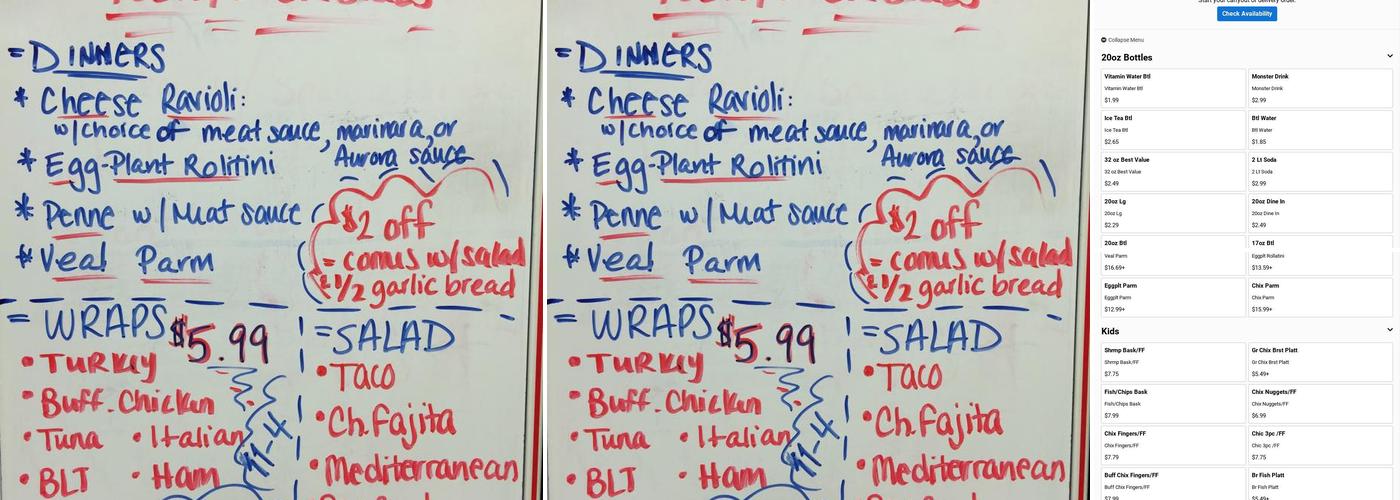 = DINNERS
* Cheese Ravioli:
w/choice of meat sauce, marinara, or
Aurora sauce
* Egg-Plant Rolitini
* Penne w/Meat sauce
* Veal Parm
$2 off
= comes w/salad
& 1/2 garlic bread
= WRAPS $5.99
• TURKEY
• Buff. Chicken
• Tuna • Italian
• BLT • Ham
11-4
= SALAD
• Taco
• Ch. Fajita
• Mediterranean
= DINNERS
* Cheese Ravioli:
w/choice of meat sauce, marinara, or
Aurora sauce
* Egg-Plant Rolitini
* Penne w/Meat sauce
* Veal Parm
$2 off
= comes w/salad
& 1/2 garlic bread
= WRAPS $5.99
• TURKEY
• Buff. Chicken
• Tuna • Italian
• BLT • Ham
11-4
= SALAD
• Taco
• Ch. Fajita
• Mediterranean
Start your carryout or delivery order.
Check Availability
Collapse Menu
20oz Bottles
Vitamin Water Btl
Vitamin Water Btl
$1.99
Monster Drink
Monster Drink
$2.99
Ice Tea Btl
Ice Tea Btl
$2.65
Btl Water
Btl Water
$1.85
32 oz Best Value
32 oz Best Value
$2.49
2 Lt Soda
2 Lt Soda
$2.99
20oz Lg
20oz Lg
$2.29
20oz Dine In
20oz Dine In
$2.49
20oz Btl
Veal Parm
$16.69+
17oz Btl
Eggplt Rollatini
$13.59+
Eggplt Parm
Eggplt Parm
$12.99+
Chix Parm
Chix Parm
$15.99+
Kids
Shrmp Bask/FF
Shrmp Bask/FF
$7.75
Gr Chix Brst Platt
Gr Chix Brst Platt
$5.49+
Fish/Chips Bask/FF
Fish/Chips Bask
$7.99
Chix Nuggets/FF
Chix Nuggets/FF
$6.99
Chix Fingers/FF
Chix Fingers/FF
$7.79
Chic 3pc /FF
Chic 3pc /FF
$7.75
Buff Chix Fingers/FF
Buff Chix Fingers/FF
$7.99
Br Fish Platt
Br Fish Platt
$5.49+